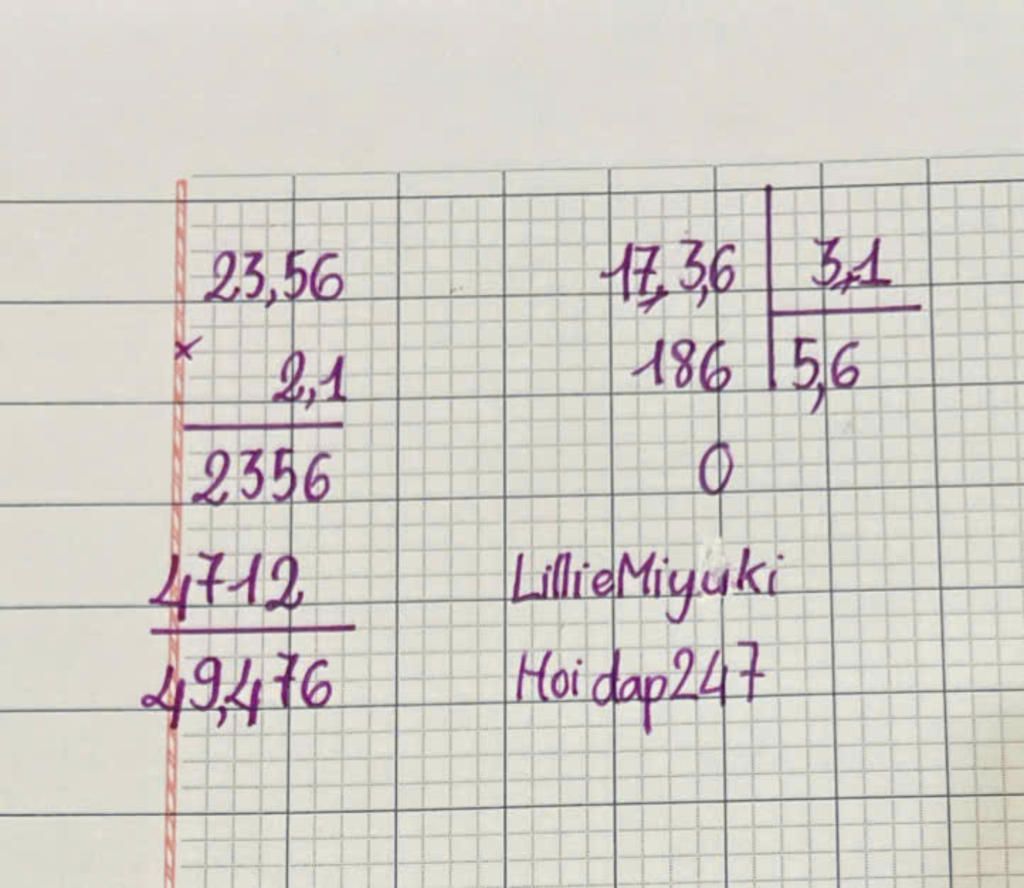 23,56
×
2,1
2356
4712
49,476
17,3,6 3,1
186 5,6
0
LillieMiyuki
Hoidap247